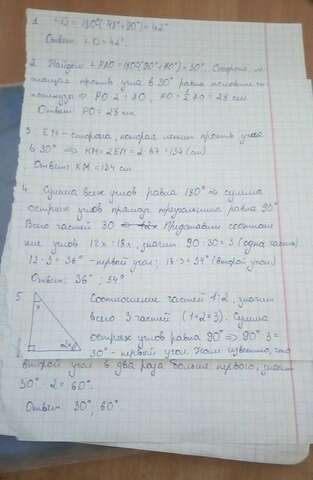 1. ∠D = 180°-(48°+90°) = 42°
Ответ: ∠D = 42°.
2. Найдём ∠PAO = 180°-(90°+60°) = 30°. Сторона, ле-
жащая против угла в 30° равна половине ги-
потенузы ⇒ PO·2 = AO, PO = ½ AO = 28 см
Ответ: PO = 28 см.
3. EM - сторона, которая лежит против угла
в 30° ⇒ KM = 2EM = 2·67 = 134 (см)
Ответ: KM = 134 см
4. Сумма всех углов равна 180° ⇒ сумма
острых углов прямоуг. треугольника равна 90°
Всего частей 30 ⇒ Представим соотноше-
ние углов 12x : 18x, значит 90 : 30 = 3 (одна часть)
12·3 = 36° - первый угол; 18·3 = 54° (второй угол)
Ответ: 36°; 54°
5. Соотношение частей 1:2, значит
всего 3 частей (1+2=3). Сумма
острых углов равна 90° ⇒ 90°:3=
30° - первый угол. Нам известно, что
второй угол в два раза больше первого, значит
30°·2 = 60°.
Ответ: 30°, 60°